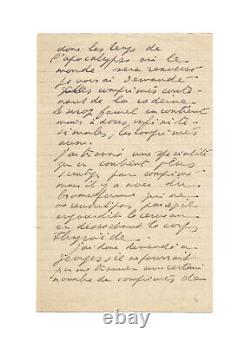 dans les temps de
l'apocalypse où le
monde sera renversé
je vous ai demandé
des comprimés conte-
nant de la codéine
le sirop famel en contient
mais à doses infinité-
simales, les comprimés
aussi.
J'ai trouvé une spécialité
qui en contient plus
par comprimé
mais il y a avec du
bromoforme qui ne
pareil
le cerveau
en desséchant le corps
thyroïde.
J'ai donc demandé à
georges s'il ne pourrait
pas me donner un certain
nombre de comprimés de